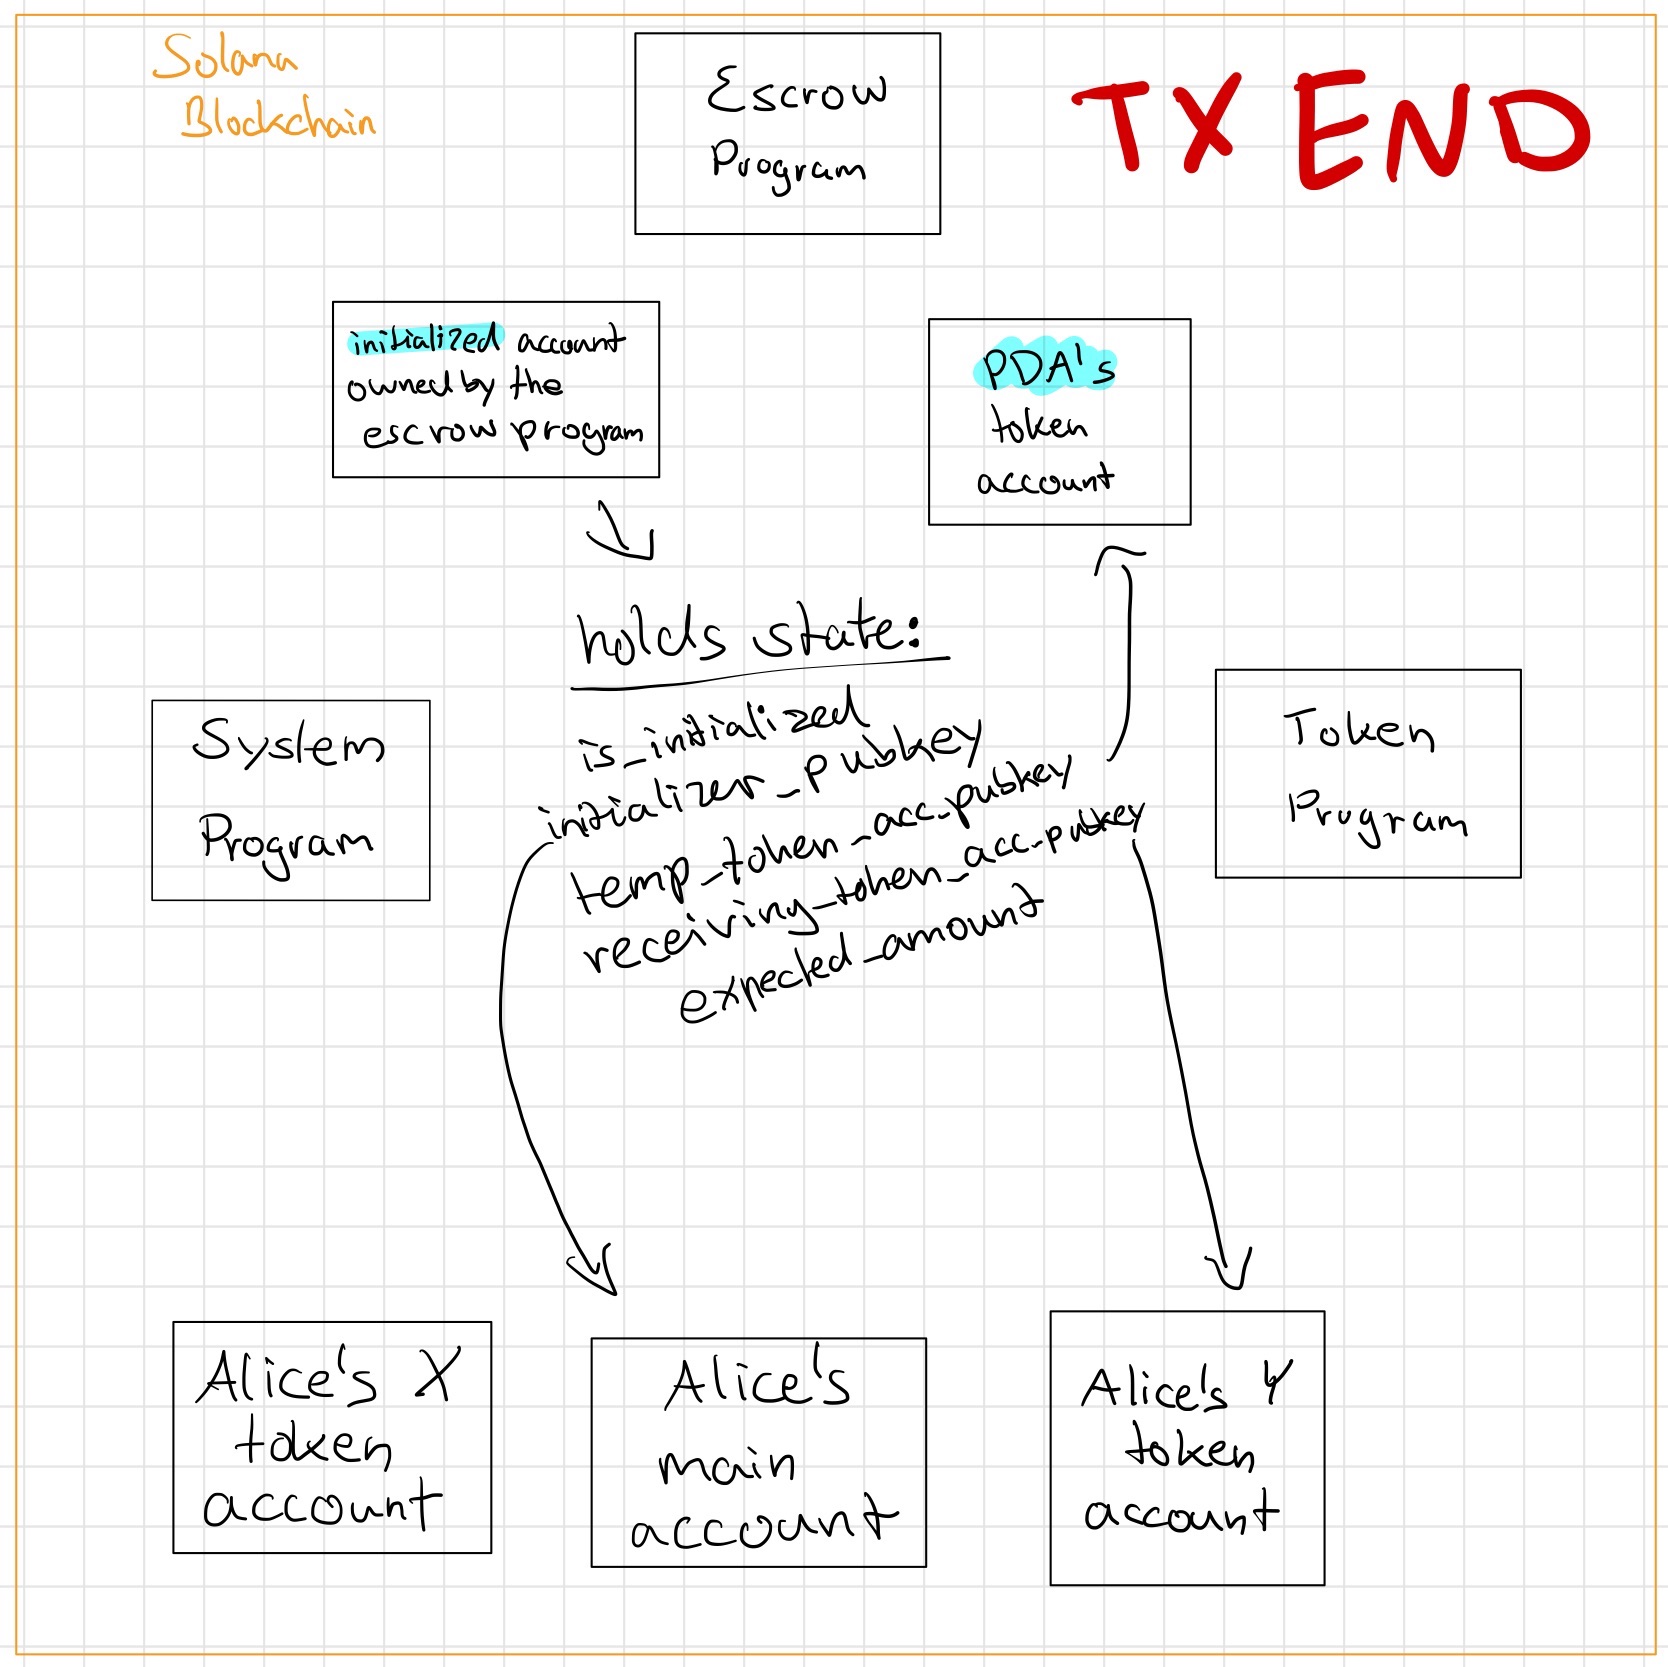 Solana
Blockchain
Escrow
Program
TX END
initialized account
owned by the
escrow program
PDA's
token
account
holds state:
is_initialized
initializer_pubkey
temp_token_acc_pubkey
receiving_token_acc_pubkey
expected_amount
System
Program
Token
Program
Alice's X
token
account
Alice's
main
account
Alice's Y
token
account